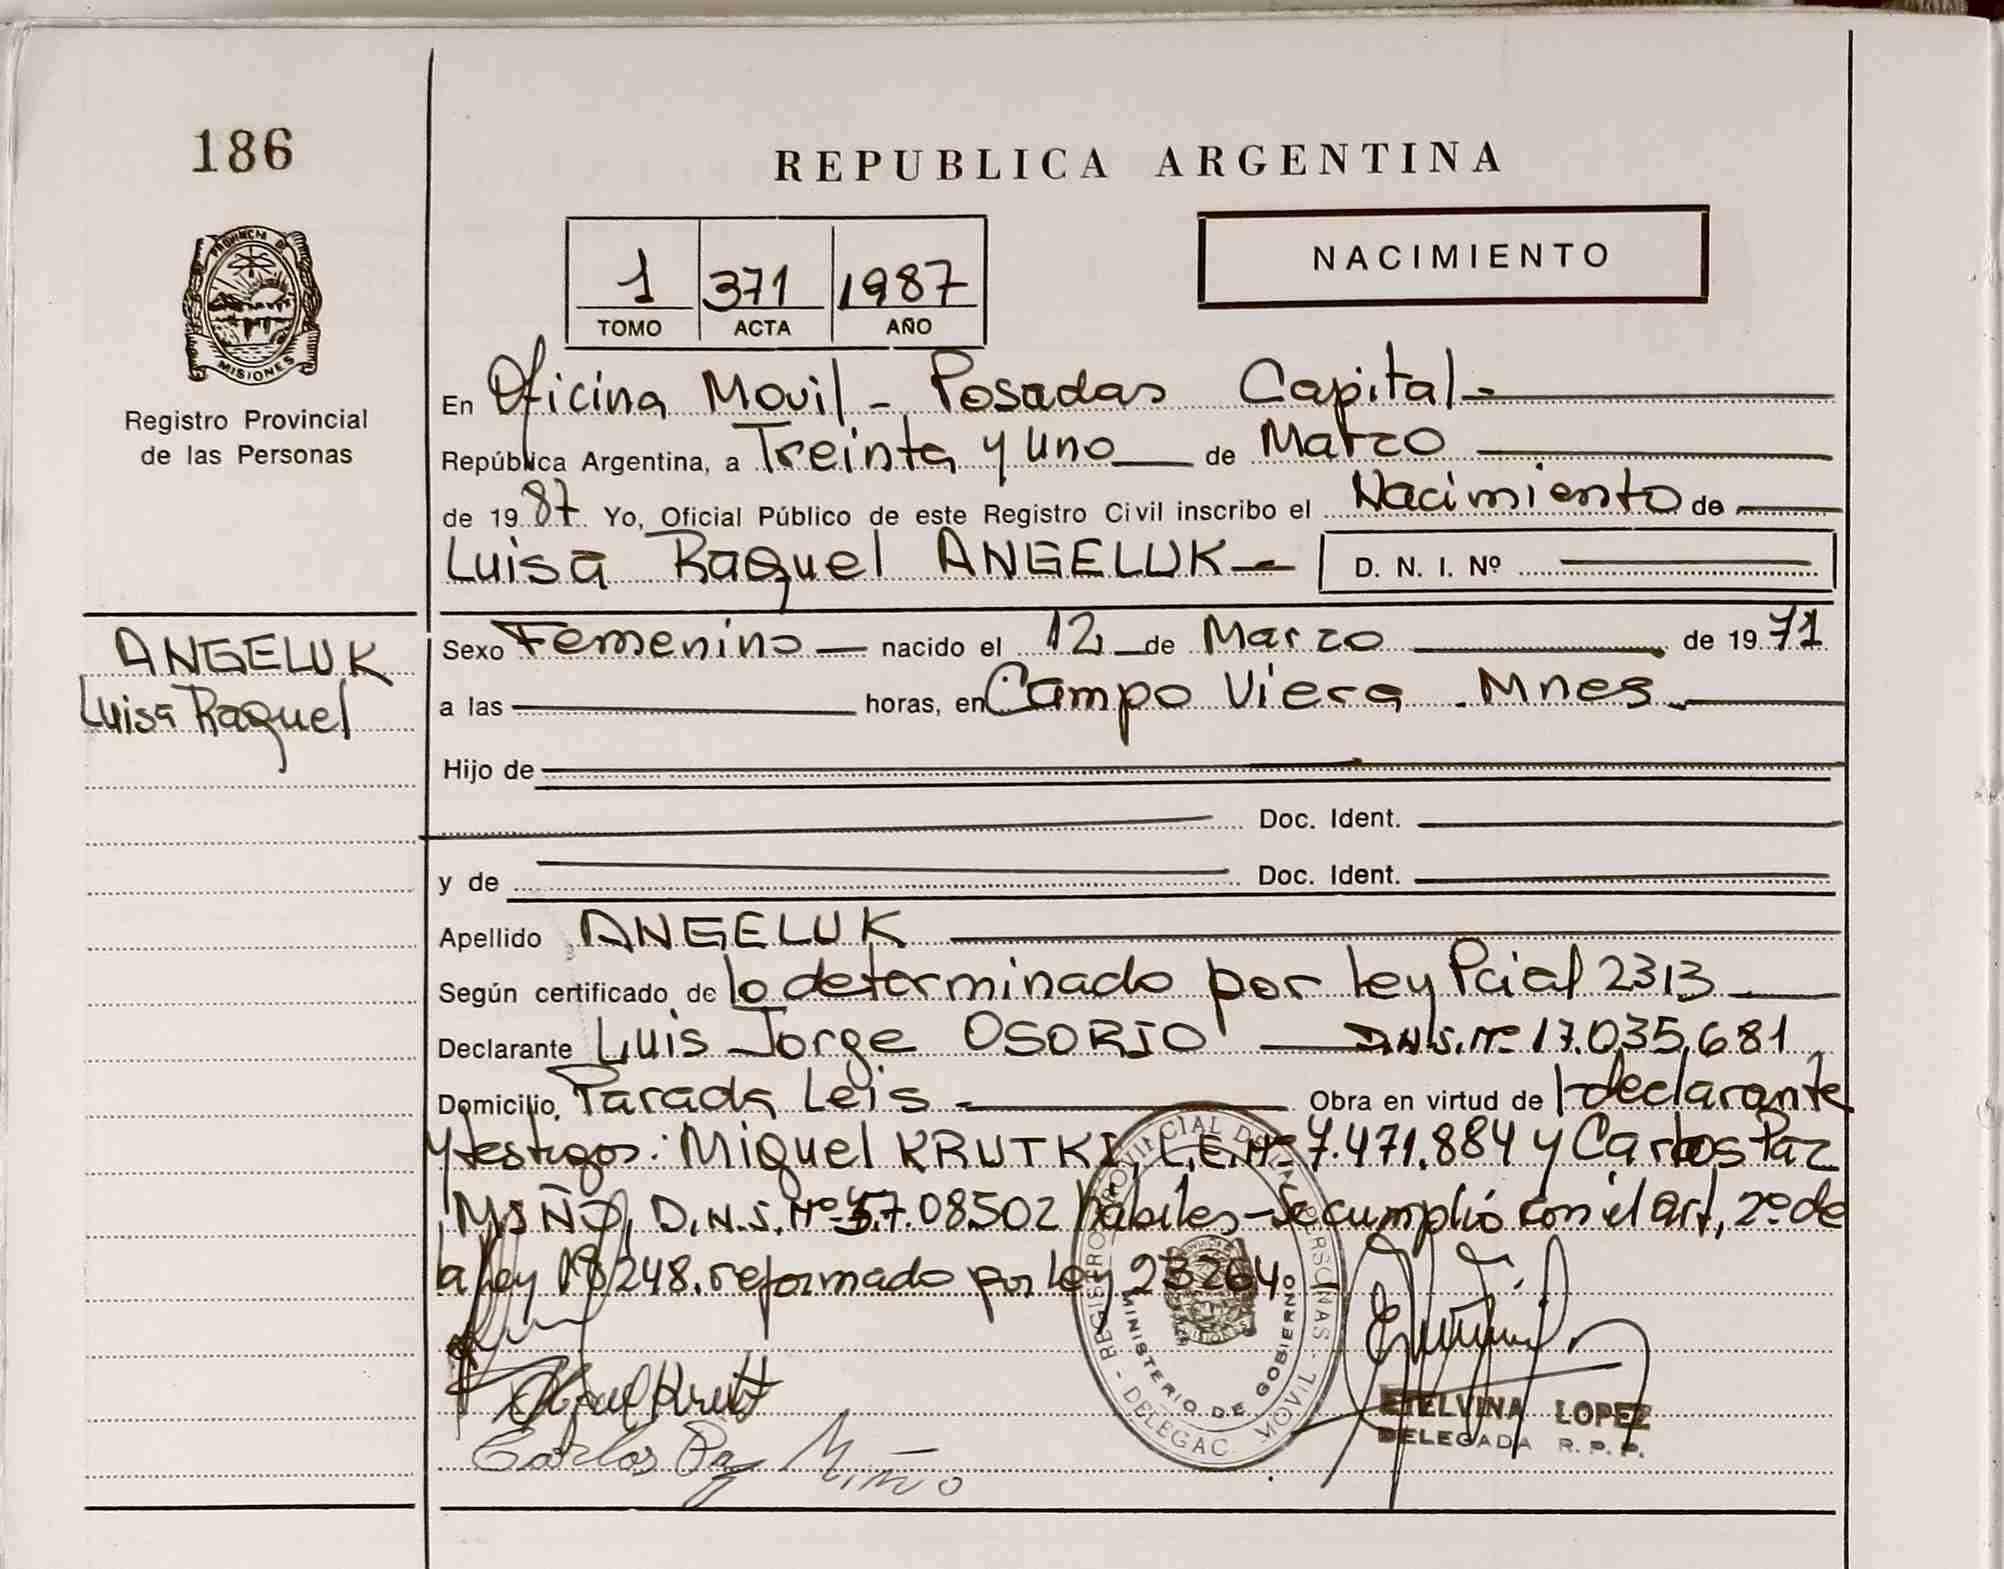 186
PROVINCIA DE
MISIONES
Registro Provincial
de las Personas
REPUBLICA ARGENTINA
1 371 1987
TOMO ACTA AÑO
NACIMIENTO
En Oficina Movil - Posadas Capital -
República Argentina, a Treinta y uno de Marzo
de 1987 Yo, Oficial Público de este Registro Civil inscribo el Nacimiento de
Luisa Raquel ANGELUK - D. N. I. Nº
ANGELUK
Luisa Raquel
Sexo Femenino nacido el 12 de Marzo de 1971
a las horas, en Campo Viera - Mnes
Hijo de
Doc. Ident.
y de Doc. Ident.
Apellido ANGELUK
Según certificado de lo determinado por ley Pcial 2313
Declarante Luis Jorge OSORIO D.N.I. Nº 17.035.681
Domicilio Parada Leis - Obra en virtud de declarante
y testigos: Miguel KRUTKI, L.E. Nº 7.471.884 y Carlos Paz
MIÑO, D.N.I. Nº 7.08502 hábiles - Se cumplió con el art. 2º de
la ley 18248. reformado por ley 23264 -
REGISTRO PROVINCIAL DE LAS PERSONAS - DELEGAC. MOVIL -
MINISTERIO DE GOBIERNO
Carlos Paz Miño
ETELVINA LOPEZ
DELEGADA R. P. P.